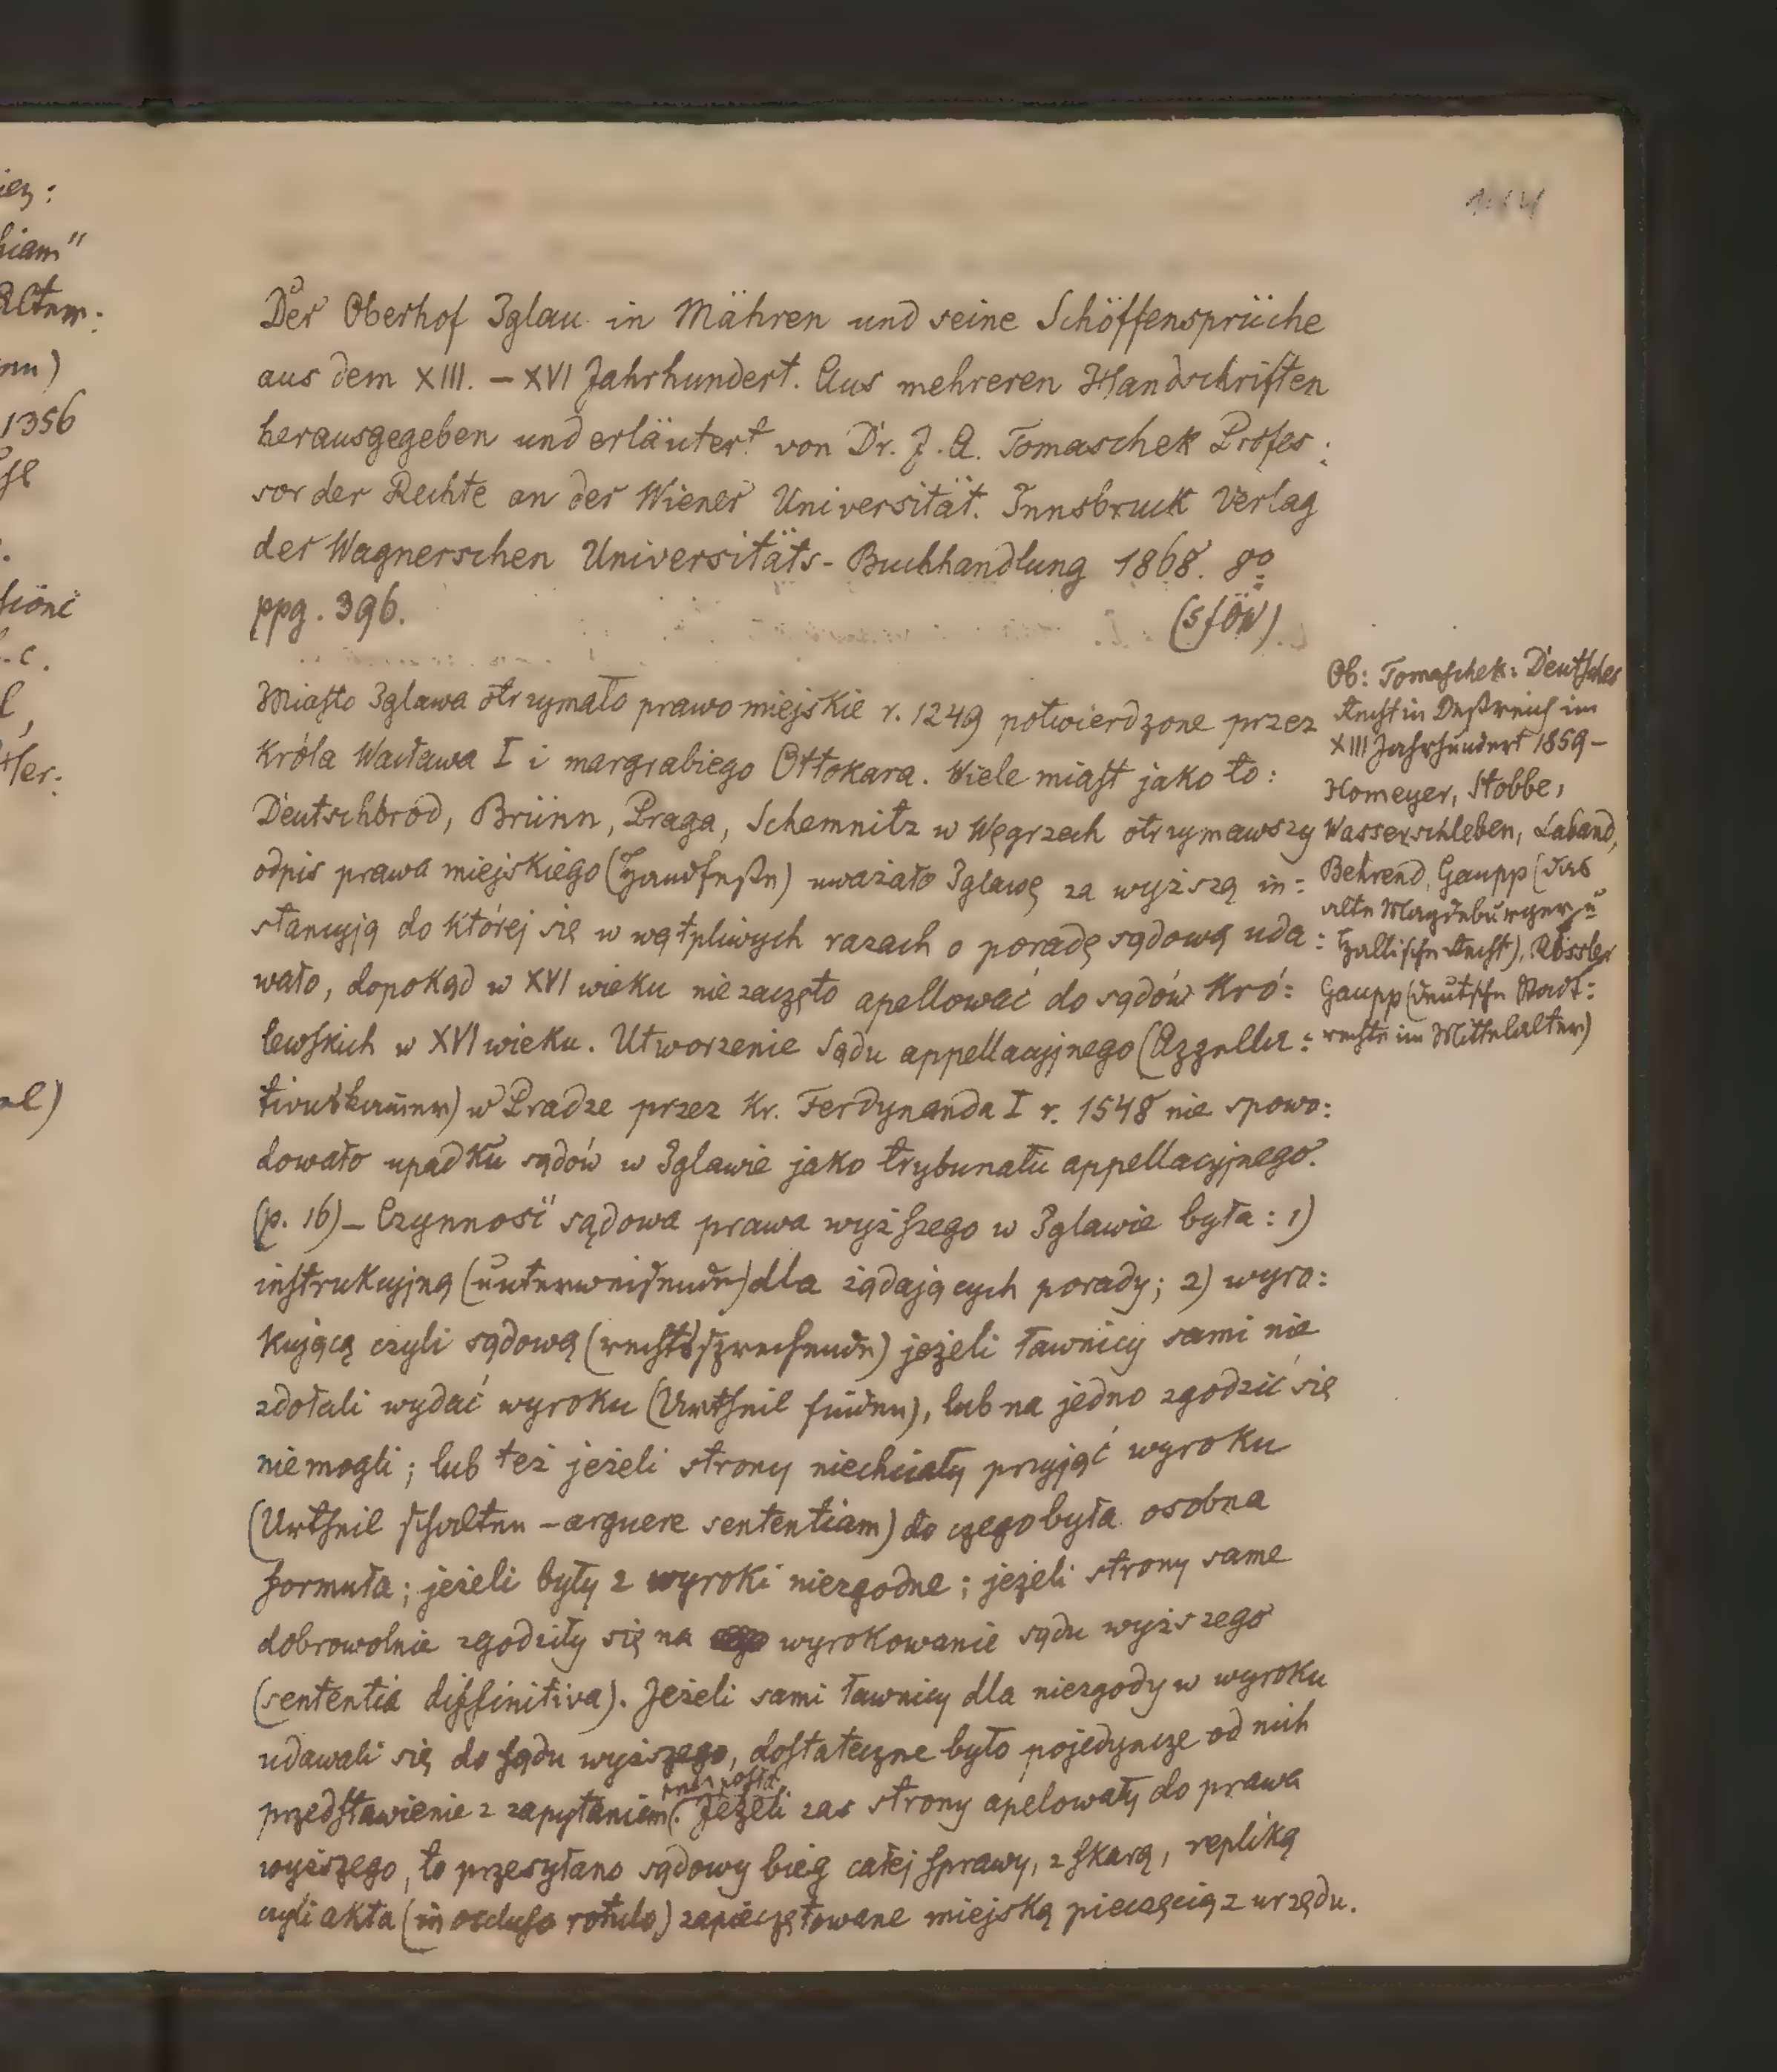 Der Oberhof Iglau in Mähren und seine Schöffensprüche
aus dem XIII. – XVI Jahrhundert. Aus mehreren Handschriften
herausgegeben und erläutert von Dr. J. A. Tomaschek Profes:
sor der Rechte an der Wiener Universität. Innsbruck Verlag
der Wagnerschen Universitäts-Buchhandlung 1868. 8o
ppg. 396.
Miasto Iglawa otrzymało prawo miejskie r. 1249 potwierdzone przez
Króla Wacława I i margrabiego Ottokara. Wiele miast jako to:
Deutschbrod, Brünn, Praga, Schemnitz w Węgrzech otrzymawszy
odpis prawa miejskiego (Handfeste) uważało Iglawę za wyższą in:
stancyją do której się w wątpliwych razach o poradę sądową uda:
wało, dopokąd w XVI wieku nie zaczęto apellować do sądów Kró:
lewskich w XVI wieku. Utworzenie sądu appellacyjnego (Appella:
tionskammer) w Pradze przez Kr. Ferdynanda I r. 1548 nie spowo:
dowało upadku sądów w Iglawie jako trybunału appellacyjnego.
(p. 16) – Czynność sądowa prawa wyższego w Iglawie była: 1)
instrukcyjną (unterweisende) dla żądających porady; 2) wyro:
kującą czyli sądową (rechtssprechende) jeżeli ławnicy sami nie
zdołali wydać wyroku (Urtheil finden), lub na jedno zgodzić się
niemogli; lub też jeżeli strony niechciały przyjąć wyroku
(Urtheil schelten – arguere sententiam) do czego była osobna
formuła; jeżeli były 2 wyroki niezgodne; jeżeli strony same
dobrowolnie zgodziły się na wyrokowanie sądu wyższego
(sententia diffinitiva). Jeżeli sami ławnicy dla niezgody w wyroku
udawali się do sądu wyższego, dostateczne było pojedyncze od nich
przedstawienie z zapytaniem. Jeżeli zas strony apelowały do prawa
wyższego, to przesyłano sądowy bieg całej sprawy, z skargą, repliką
czyli akta (in occluso rotulo) zapieczętowane miejską pieczęcią z urzędu.
Ob: Tomaschek: Deutsches
Recht in Oestreich im
XIII Jahrhundert 1859 –
Homeyer, Stobbe,
Wasserschleben, Laband,
Behrend, Gaupp (das
alte Magdeburger u
Hallische Recht), Rössler
Gaupp (deutsche Stadt:
rechte im Mittelalter)